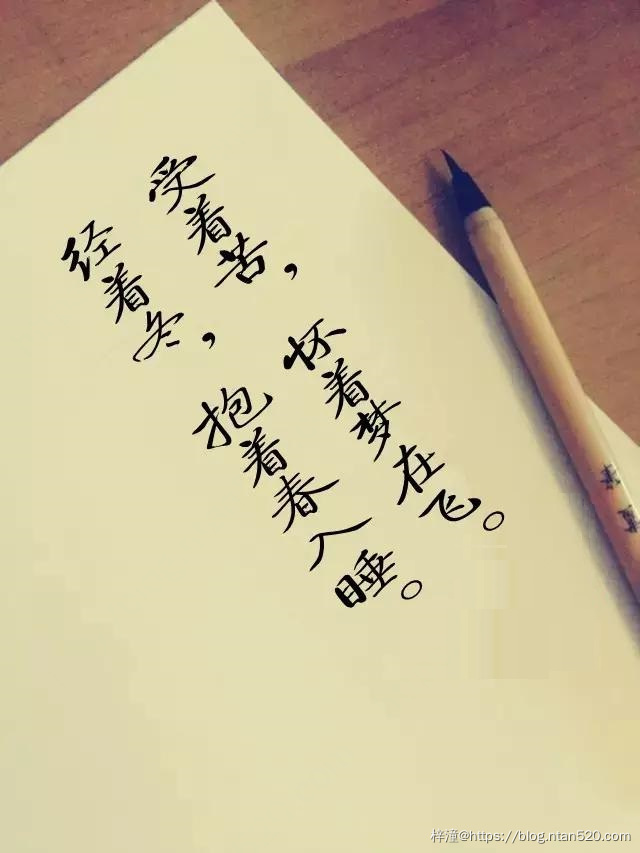 受着苦，怀着梦在飞。
经着冬，抱着春入睡。
梓潼@https://blog.ntan520.com